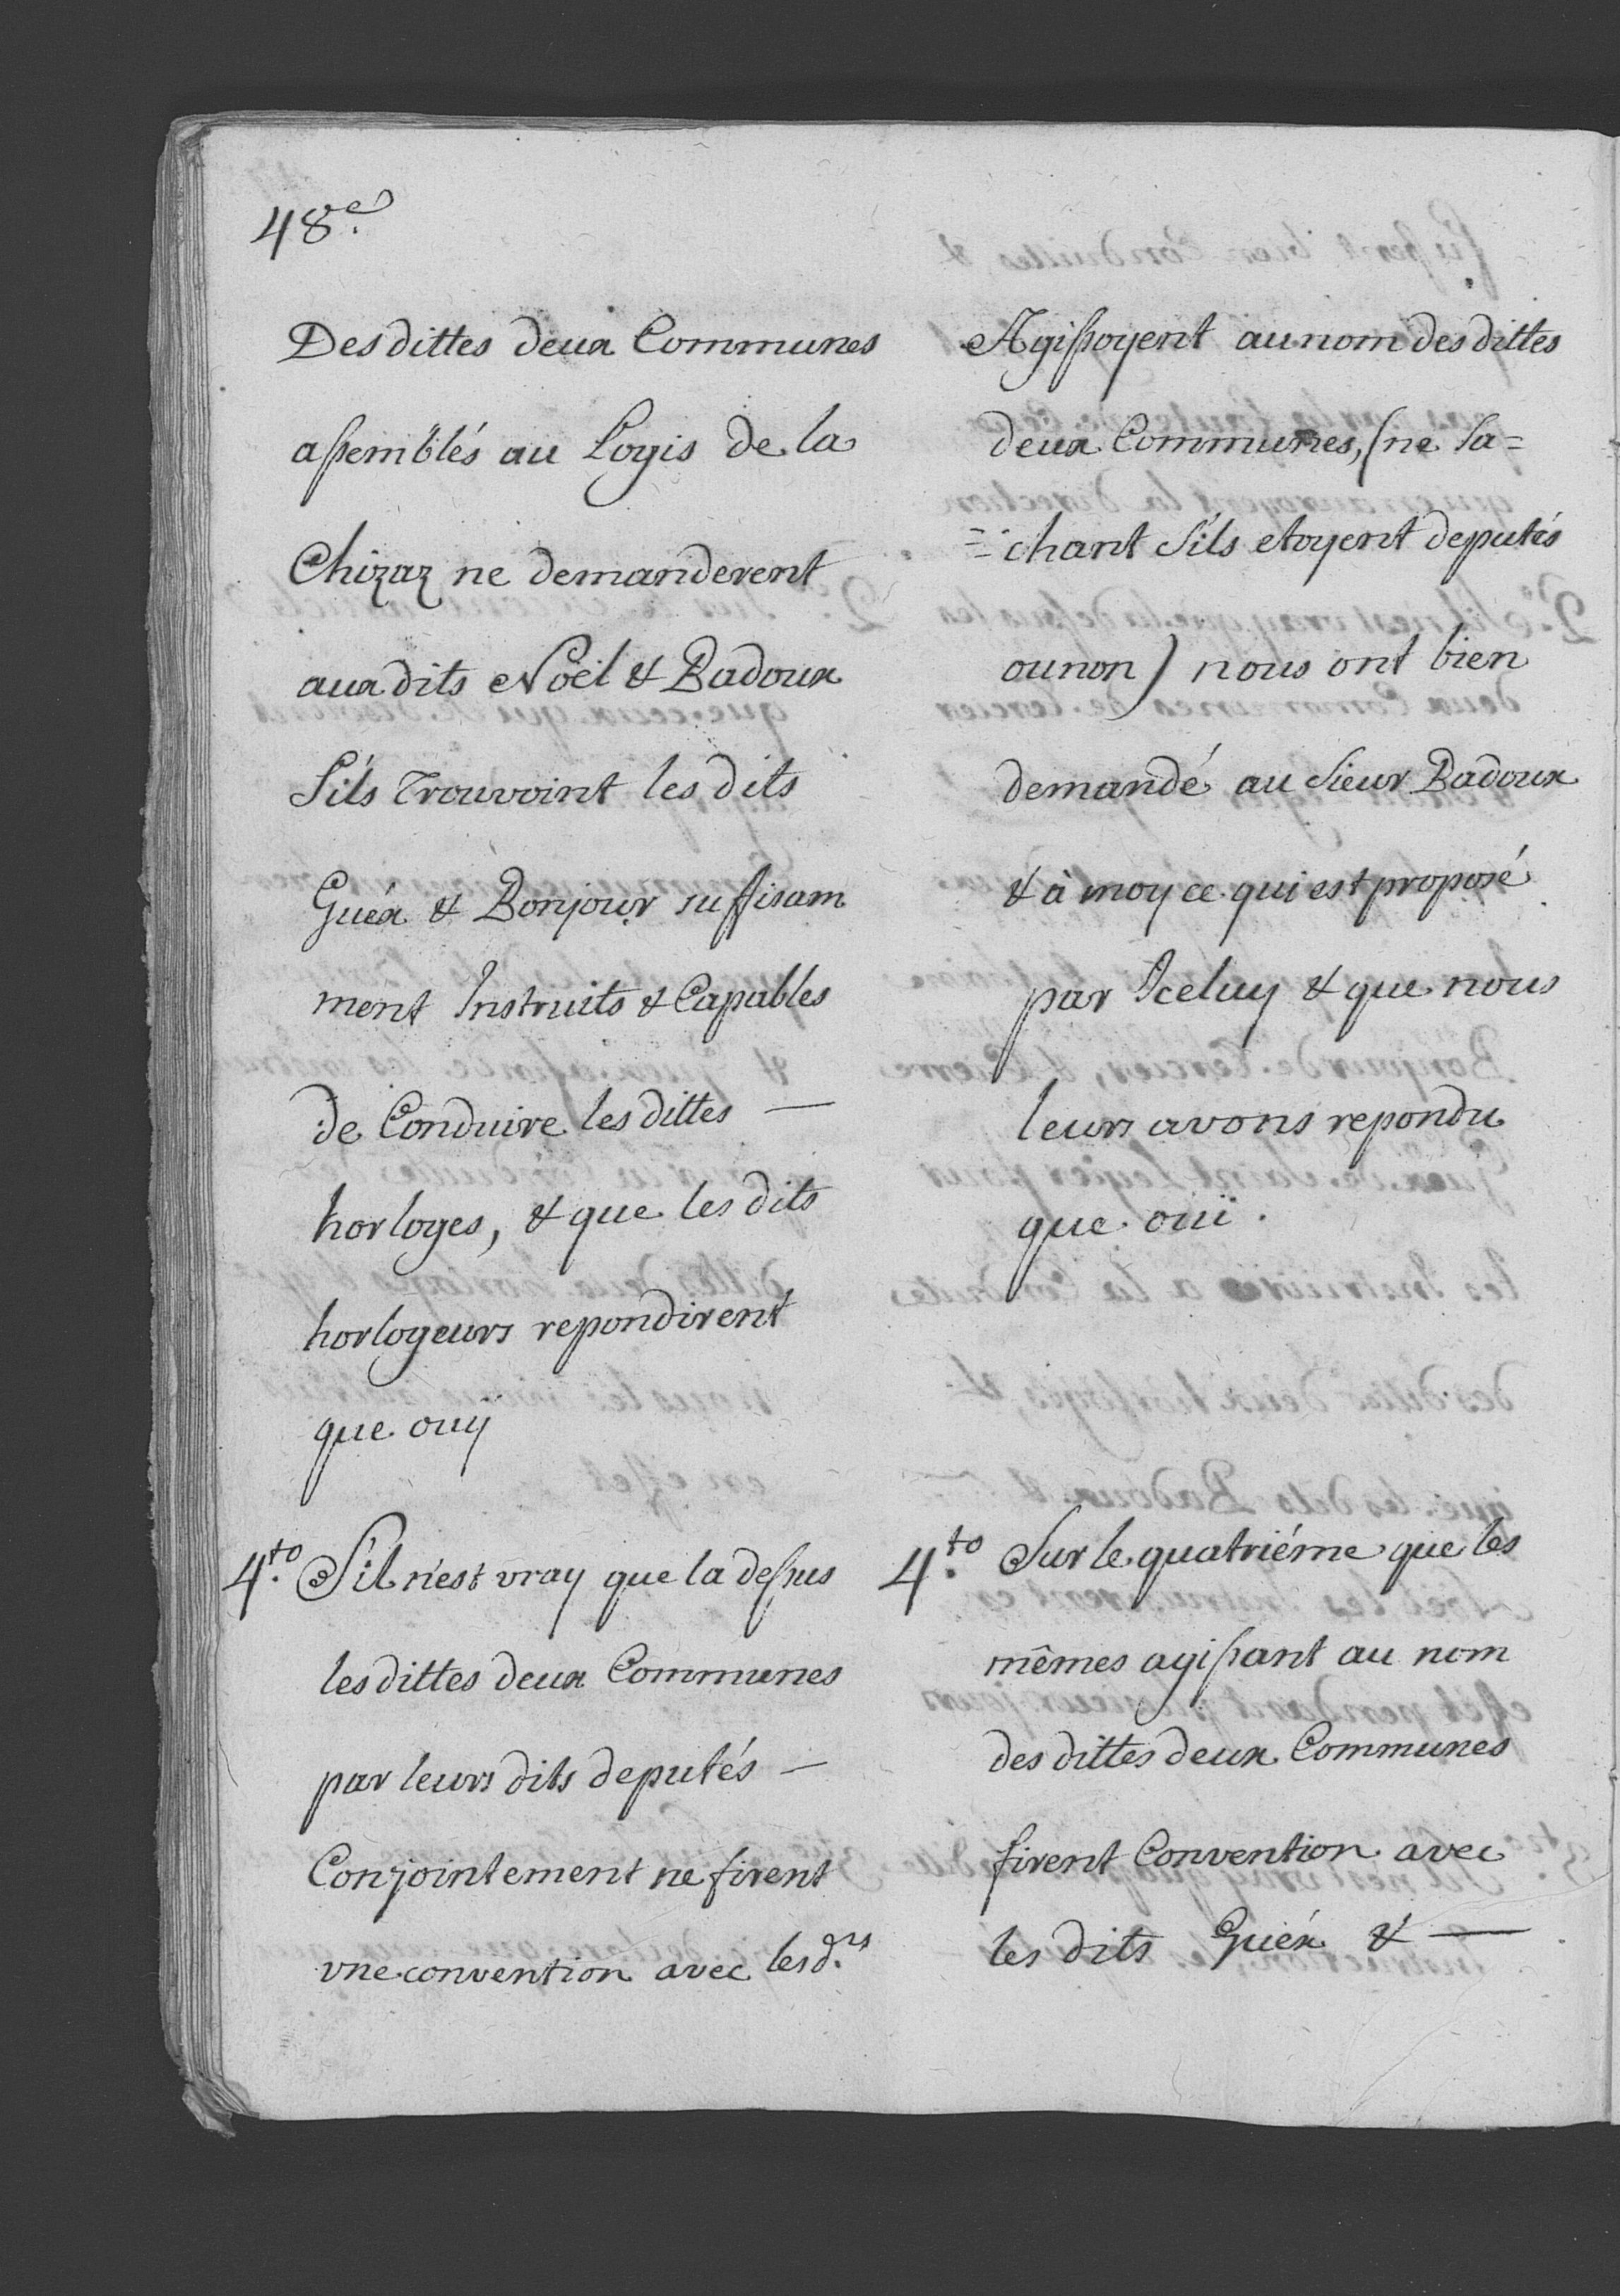 48.e
Des dittes deux Communes
assemblés au Logis de la
Chizaz ne demanderent
aux dits Noël & Badoux
S'ils Trouvoint les dits
Guéx & Bonjour suffisam
ment Instruits & Capables
de Conduire les dittes —
horloges, & que les dits
horlogeurs repondirent
que ouy
4.to S'il n'est vray que la dessus
les dittes deux Communes
par leurs dits deputés —
Conjointement ne firent
vne convention avec les d.ts
Agissoyent au nom des dittes
deux Communes, (ne sa=
=chant s'ils etoyent deputés
ou non) nous ont bien
demandé au Sieur Badoux
& à moy ce qui est proposé
par Iceluy & que nous
leurs avons repondu
que oüi.
4.to Sur le quatriéme que les
mêmes agissant au nom
des dittes deux Communes
firent Convention avec
les dits Guéx & —